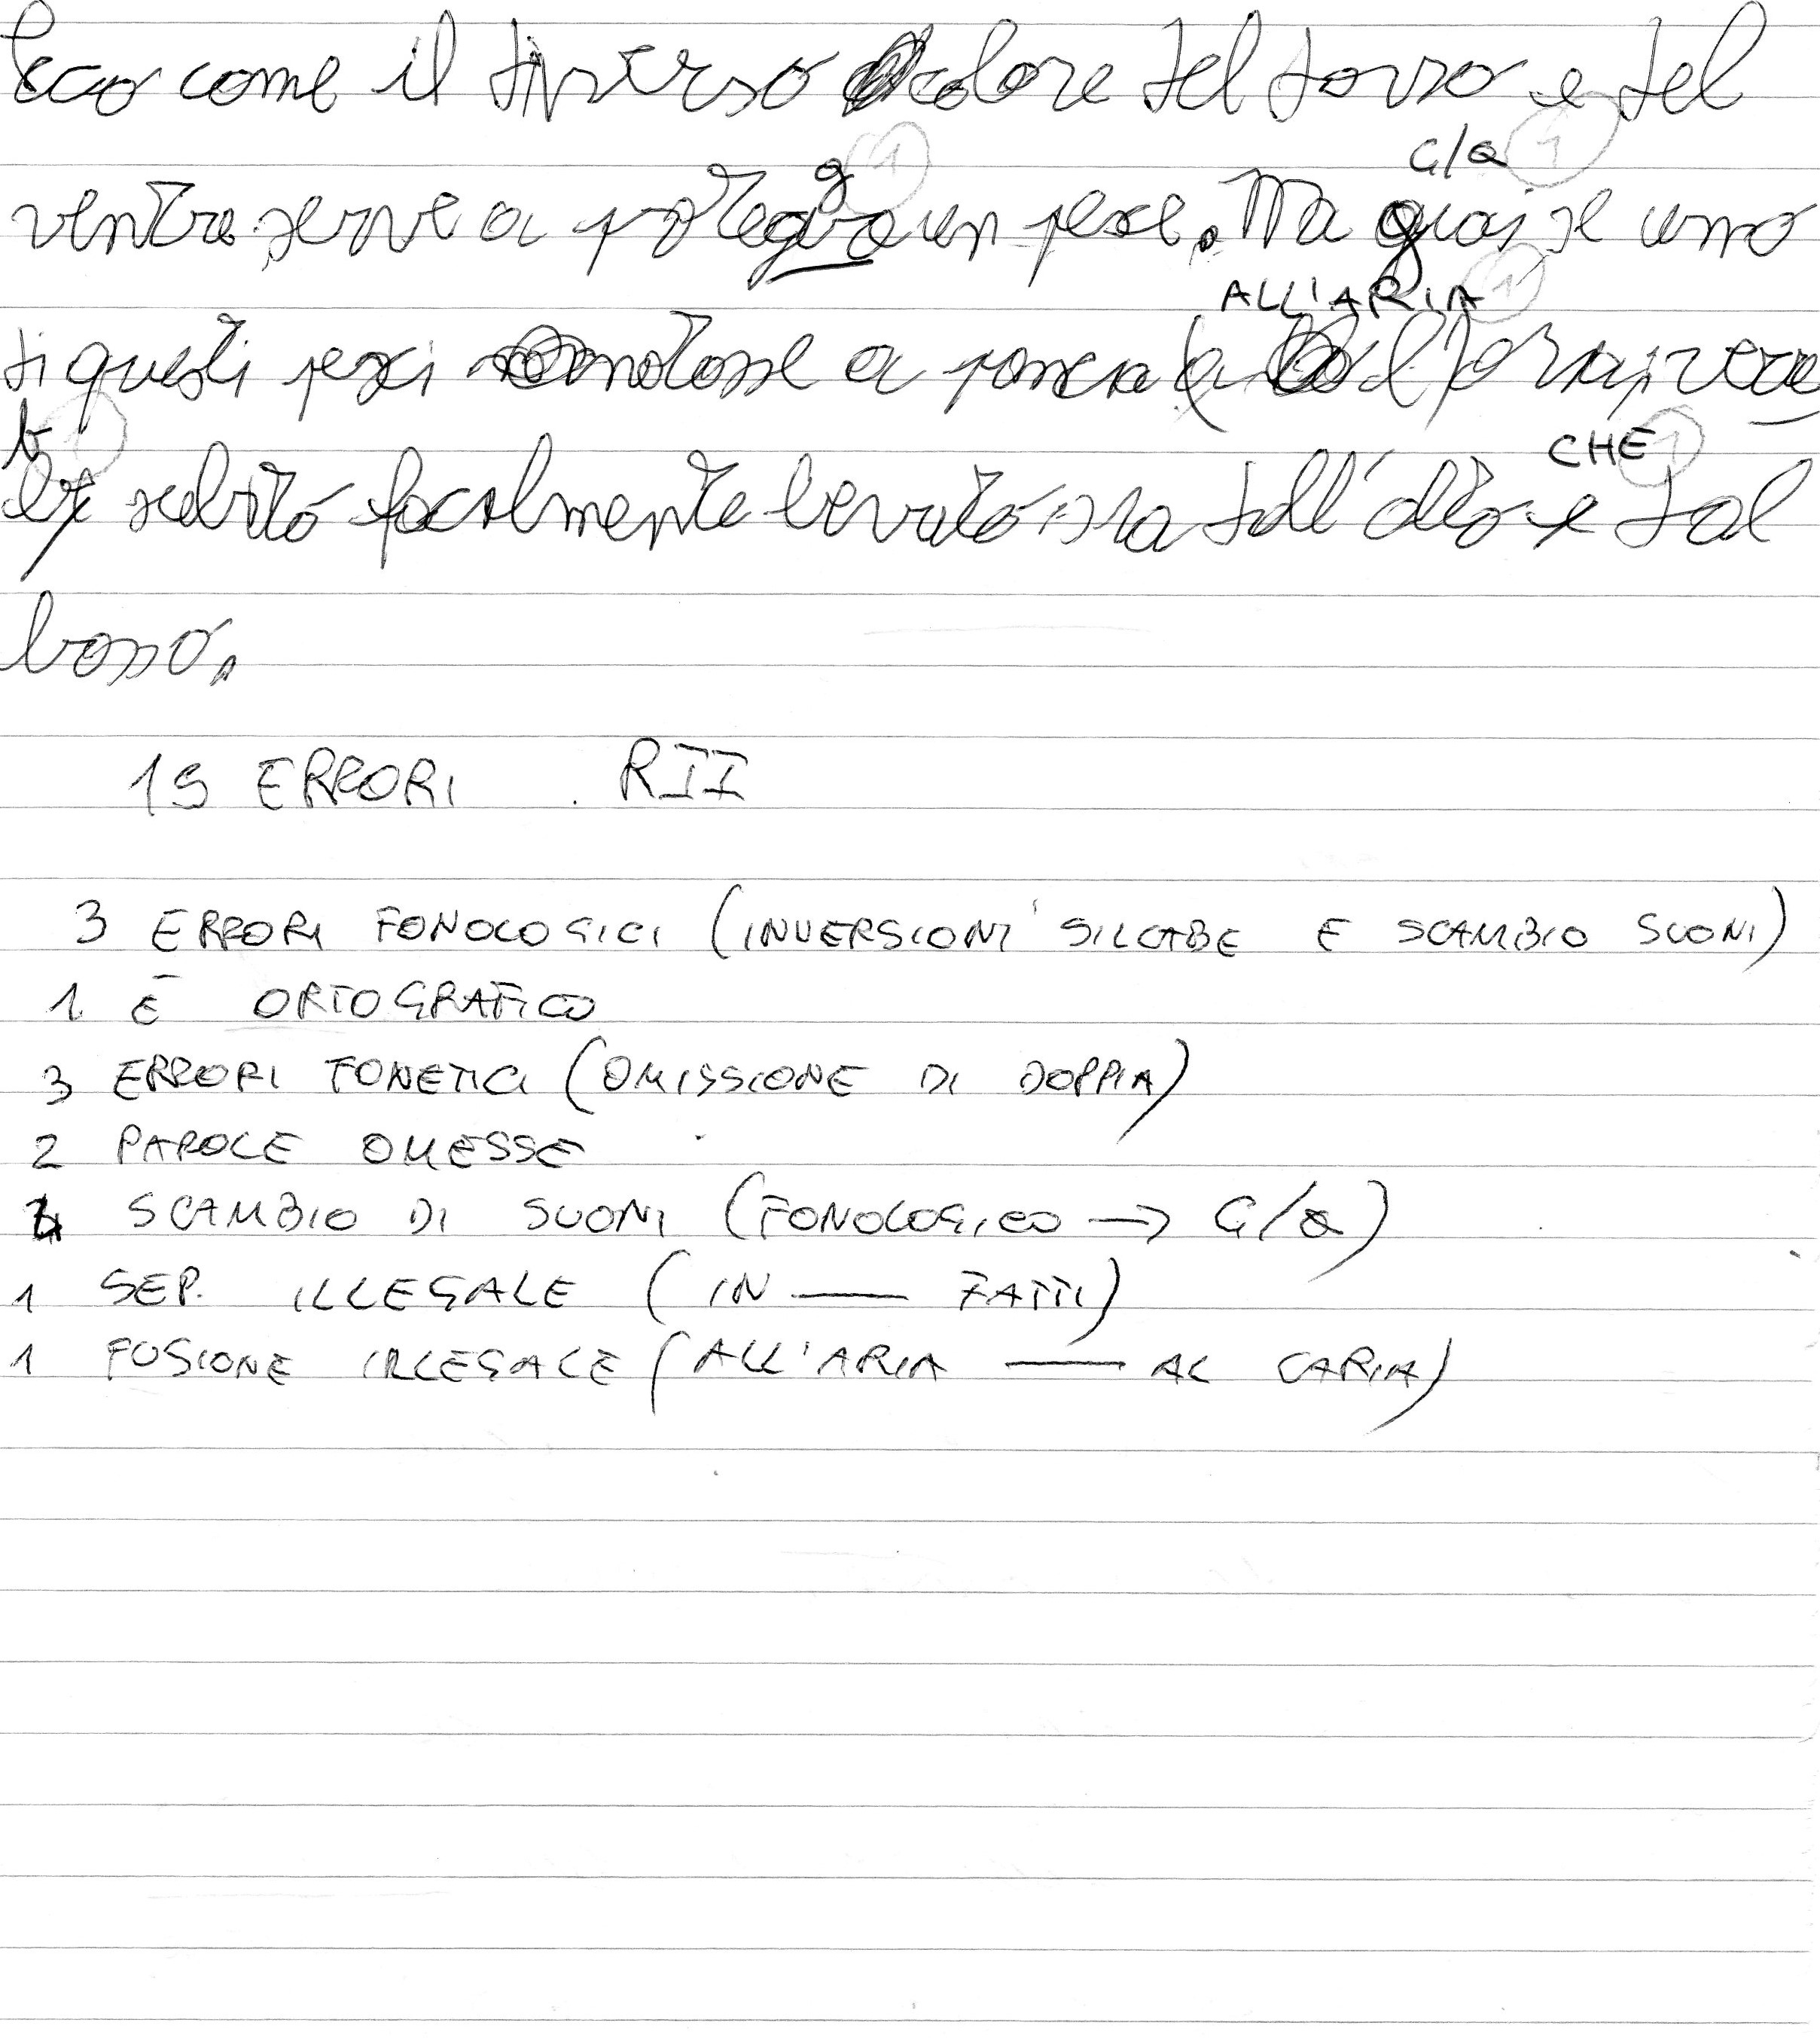 Ecco come il diverso colore del dorso e del
g 1 G/Q 1
ventre serve a protegere un pesce. Ma guai se uno
ALL'ARIA 1
di questi pesci nuotasse a pancia
b 1 CHE 1
subito facilmente dall'alto e dal
basso.
19 ERRORI . RII
3 ERRORI FONOLOGICI (INVERSIONI SILLABE E SCAMBIO SUONI)
1 E ORTOGRAFICO
3 ERRORI FONETICI (OMISSIONE DI DOPPIA)
2 PAROLE OMESSE
4 SCAMBIO DI SUONI (FONOLOGICO → G/Q)
1 SEP. ILLEGALE (IN — FATTI)
1 FUSIONE ILLEGALE (ALL'ARIA — AL CARIA)